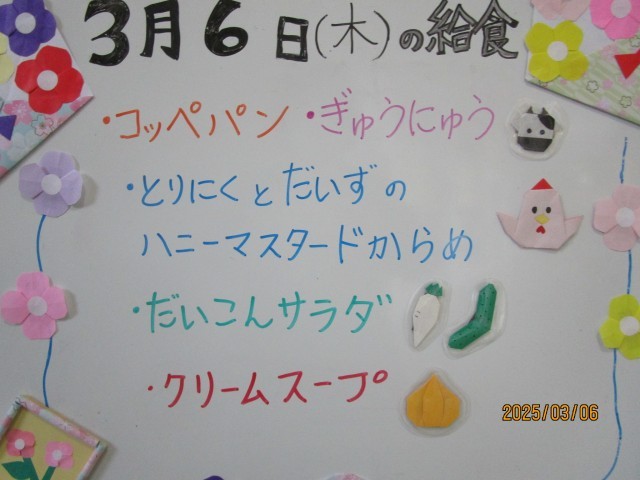 3月6日(木)の給食
・コッペパン ・ぎゅうにゅう
・とりにくとだいずの
ハニーマスタードからめ
・だいこんサラダ
・クリームスープ
2025/03/06